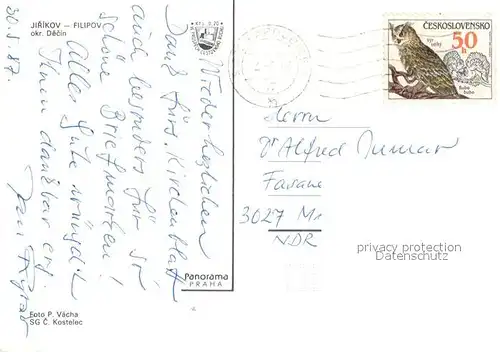 JIŘÍKOV — FILIPOV
okr. Děčín
30.5.87.
Wieder herzlichen
Dank fürs Kirchenblatt
auch besonders für
schöne Briefmarken!
Alles Gute wünscht
Ihnen dankbar erg.
Foto P. Vácha
SG Č. Kostelec
Panorama
PRAHA
ČESKOSLOVENSKO
50
h
Výr velký
Bubo
bubo
Herrn
Dr Alfred
3027
NDR
privacy protection
Datenschutz